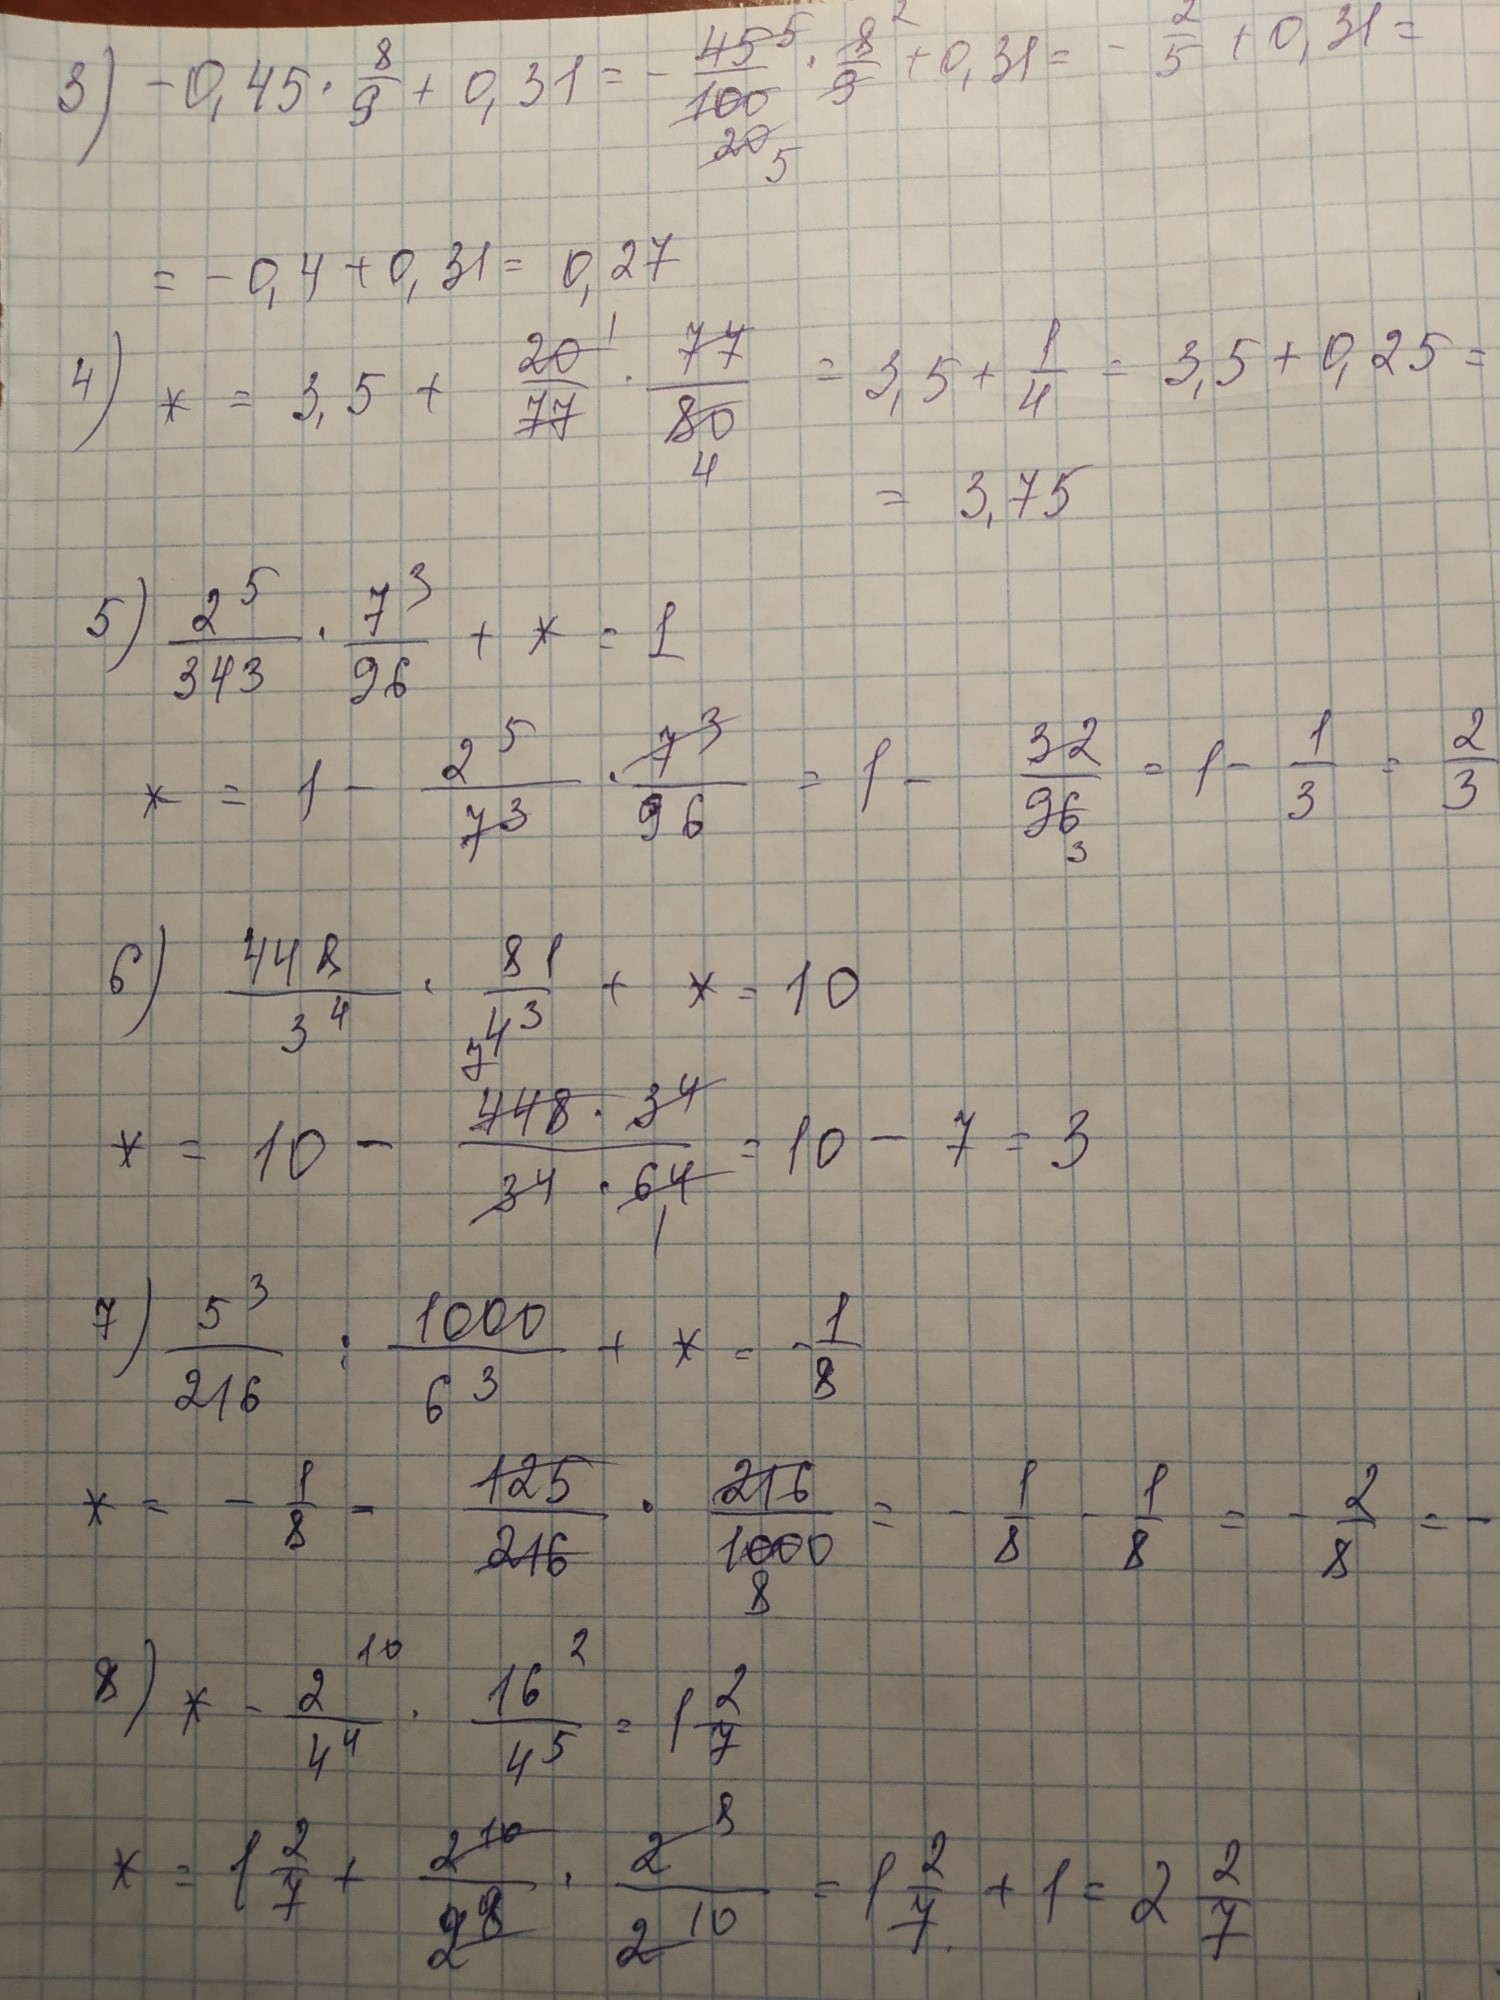 3) -0,45 · 8/9 + 0,31 = - 45⁵/100 20 5 · 8²/9 + 0,31 = - 2/5 + 0,31 =
= -0,4 + 0,31 = 0,27
4) * = 3,5 + 20¹/77 · 77/80 4 = 3,5 + 1/4 = 3,5 + 0,25 =
= 3,75
5) 2⁵/343 · 7³/96 + * = 1
* = 1 - 2⁵/7³ · 7³/96 = 1 - 32/96 3 = 1 - 1/3 = 2/3
6) 448/3⁴ · 81/4³ + * = 10
* = 10 - 7 448 · 3⁴/3⁴ · 64 1 = 10 - 7 = 3
7) 5³/216 : 1000/6³ + * = -1/8
* = - 1/8 - 125/216 · 216/1000 8 = - 1/8 - 1/8 = - 2/8 = -
8) * - 2¹⁰/4⁴ · 16²/4⁵ = 1 2/7
* = 1 2/7 + 2¹⁰/2⁸ · 2⁸/2¹⁰ = 1 2/7 + 1 = 2 2/7